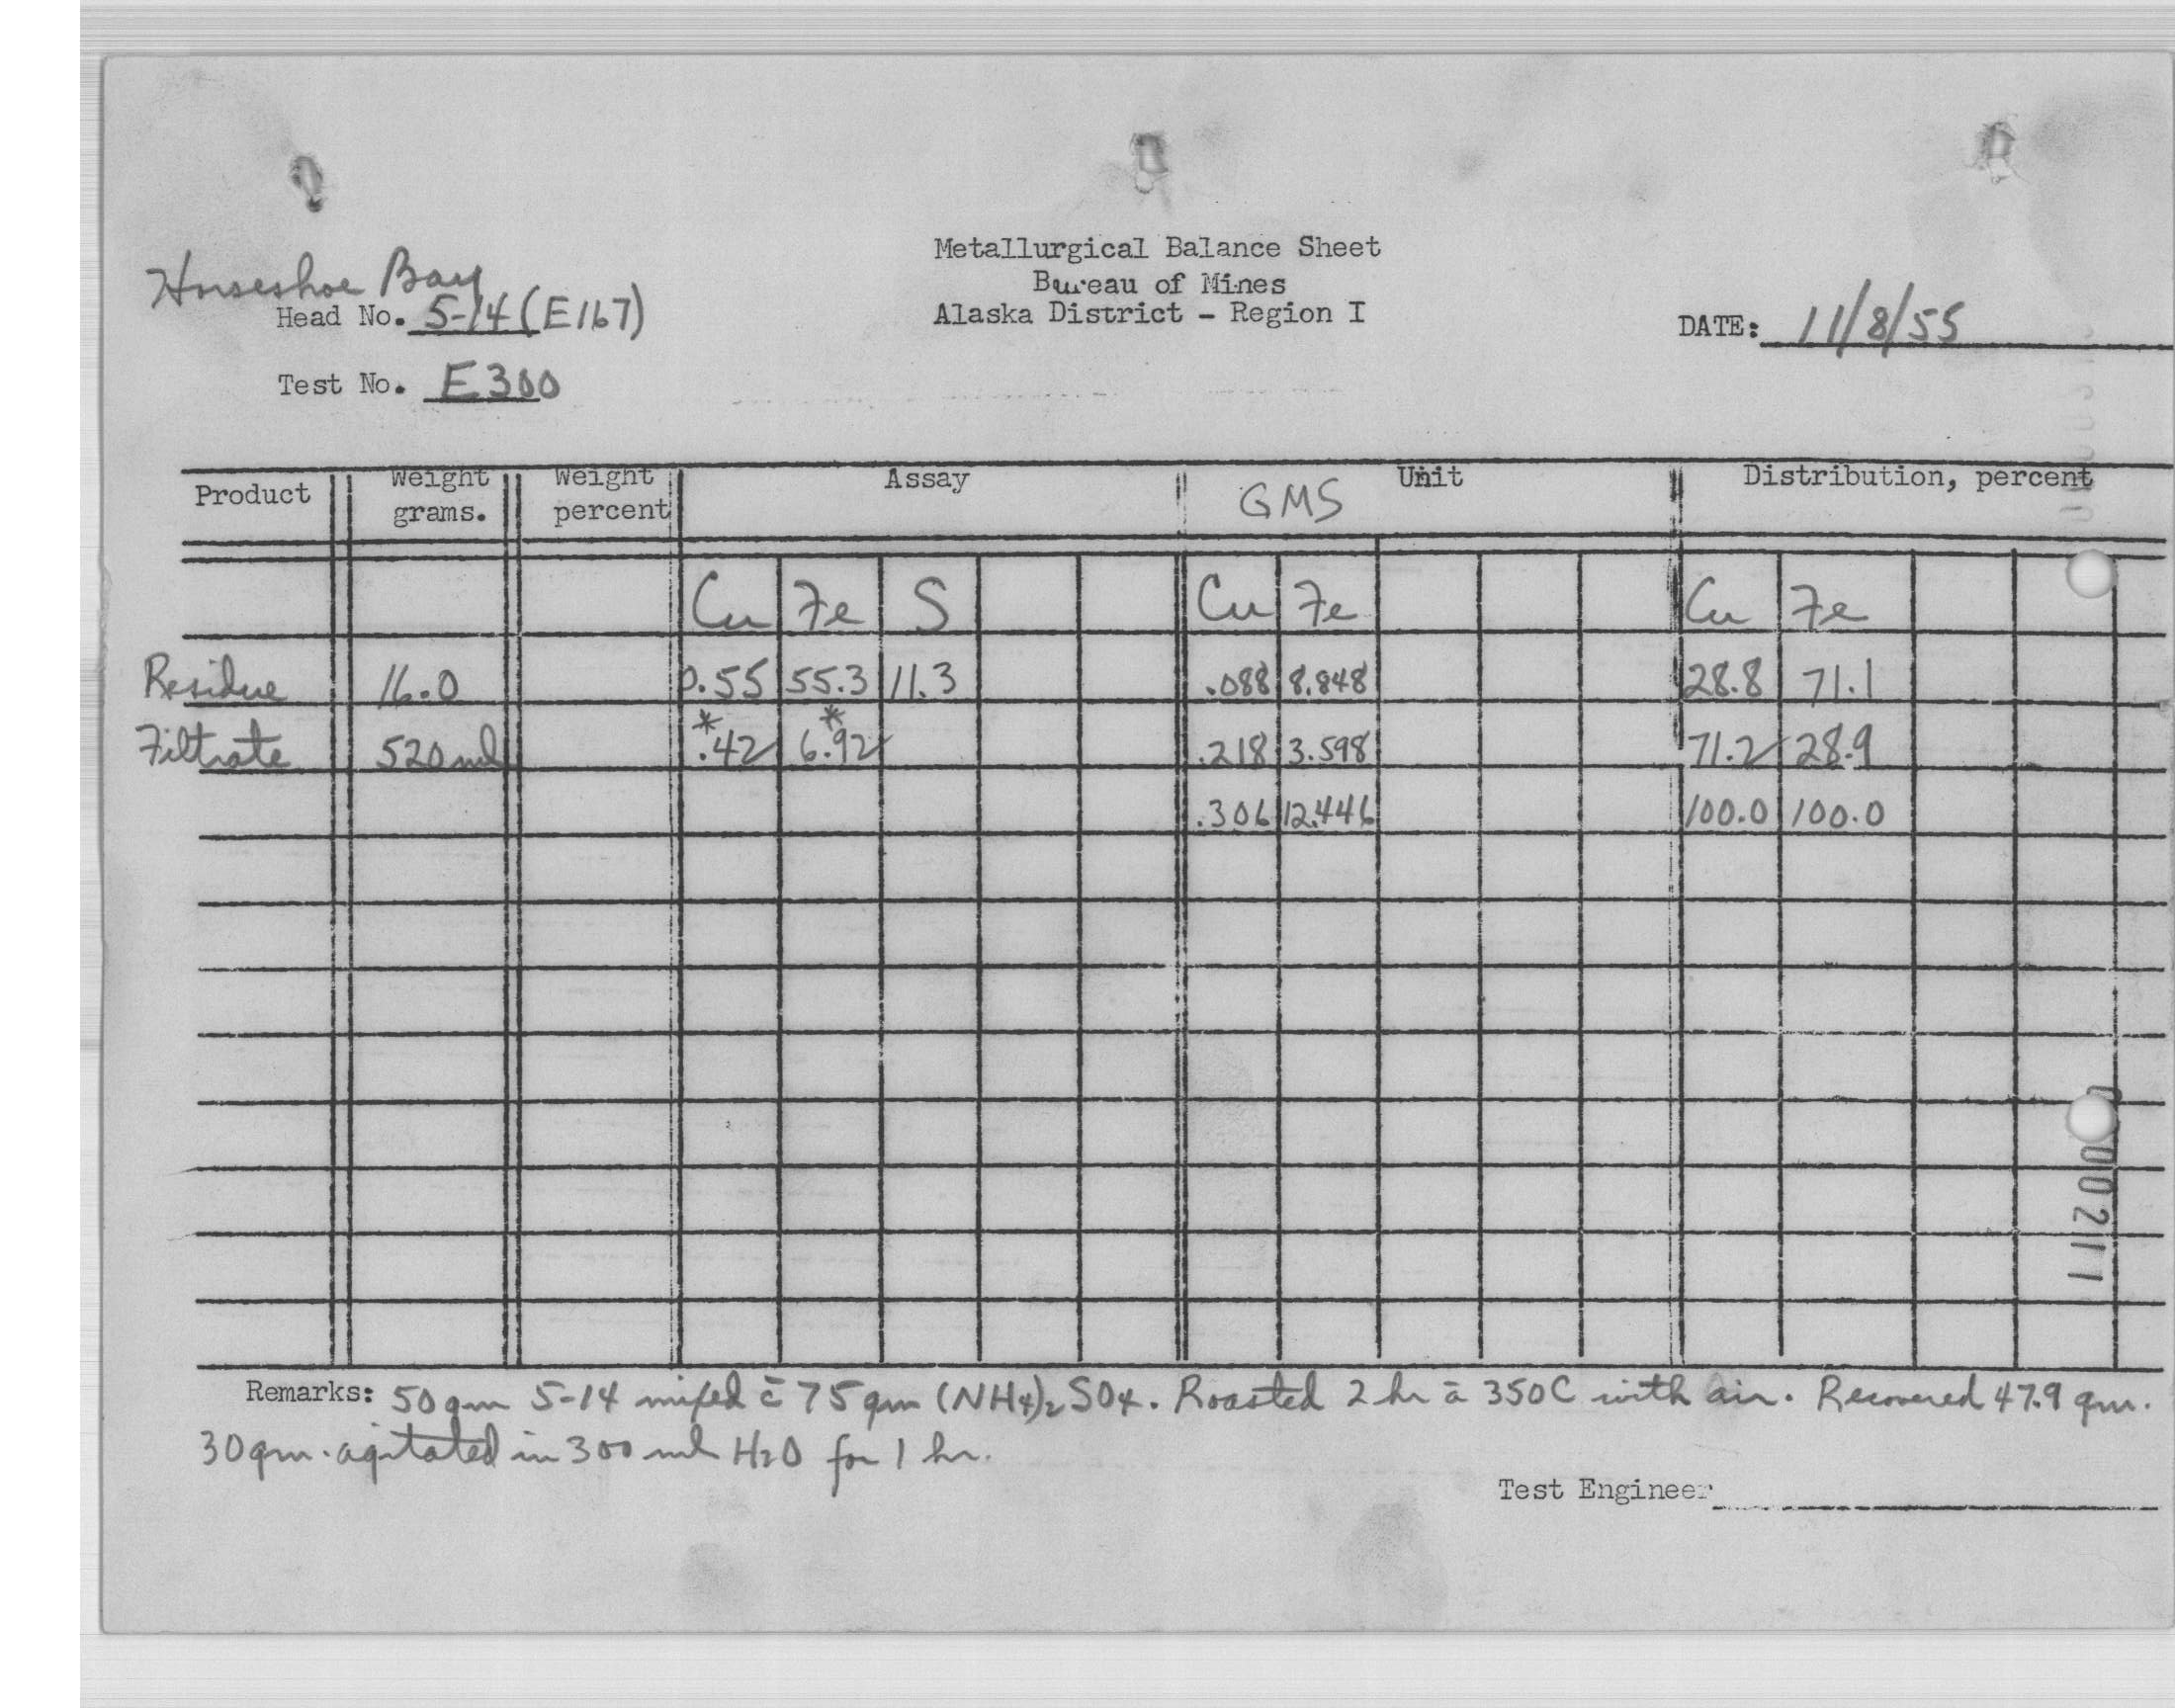 Metallurgical Balance Sheet
Bureau of Mines
Alaska District - Region I
Horseshoe Bay
Head No. 5-14 (E167)
DATE: 11/8/55
Test No. E300
Product Weight grams. Weight percent Assay Unit Distribution, percent
GMS
Cu Fe S Cu Fe Cu Fe
Residue 16.0 0.55 55.3 11.3 .088 8.848 28.8 71.1
Filtrate 520 ml *.42 *6.92 .218 3.598 71.2 28.9
.306 12.446 100.0 100.0
Remarks: 50 gm 5-14 mixed c̄ 75 gm (NH4)2SO4. Roasted 2 hr ā 350C with air. Recovered 47.9 gm.
30 gm. agitated in 300 ml H2O for 1 hr.
Test Engineer